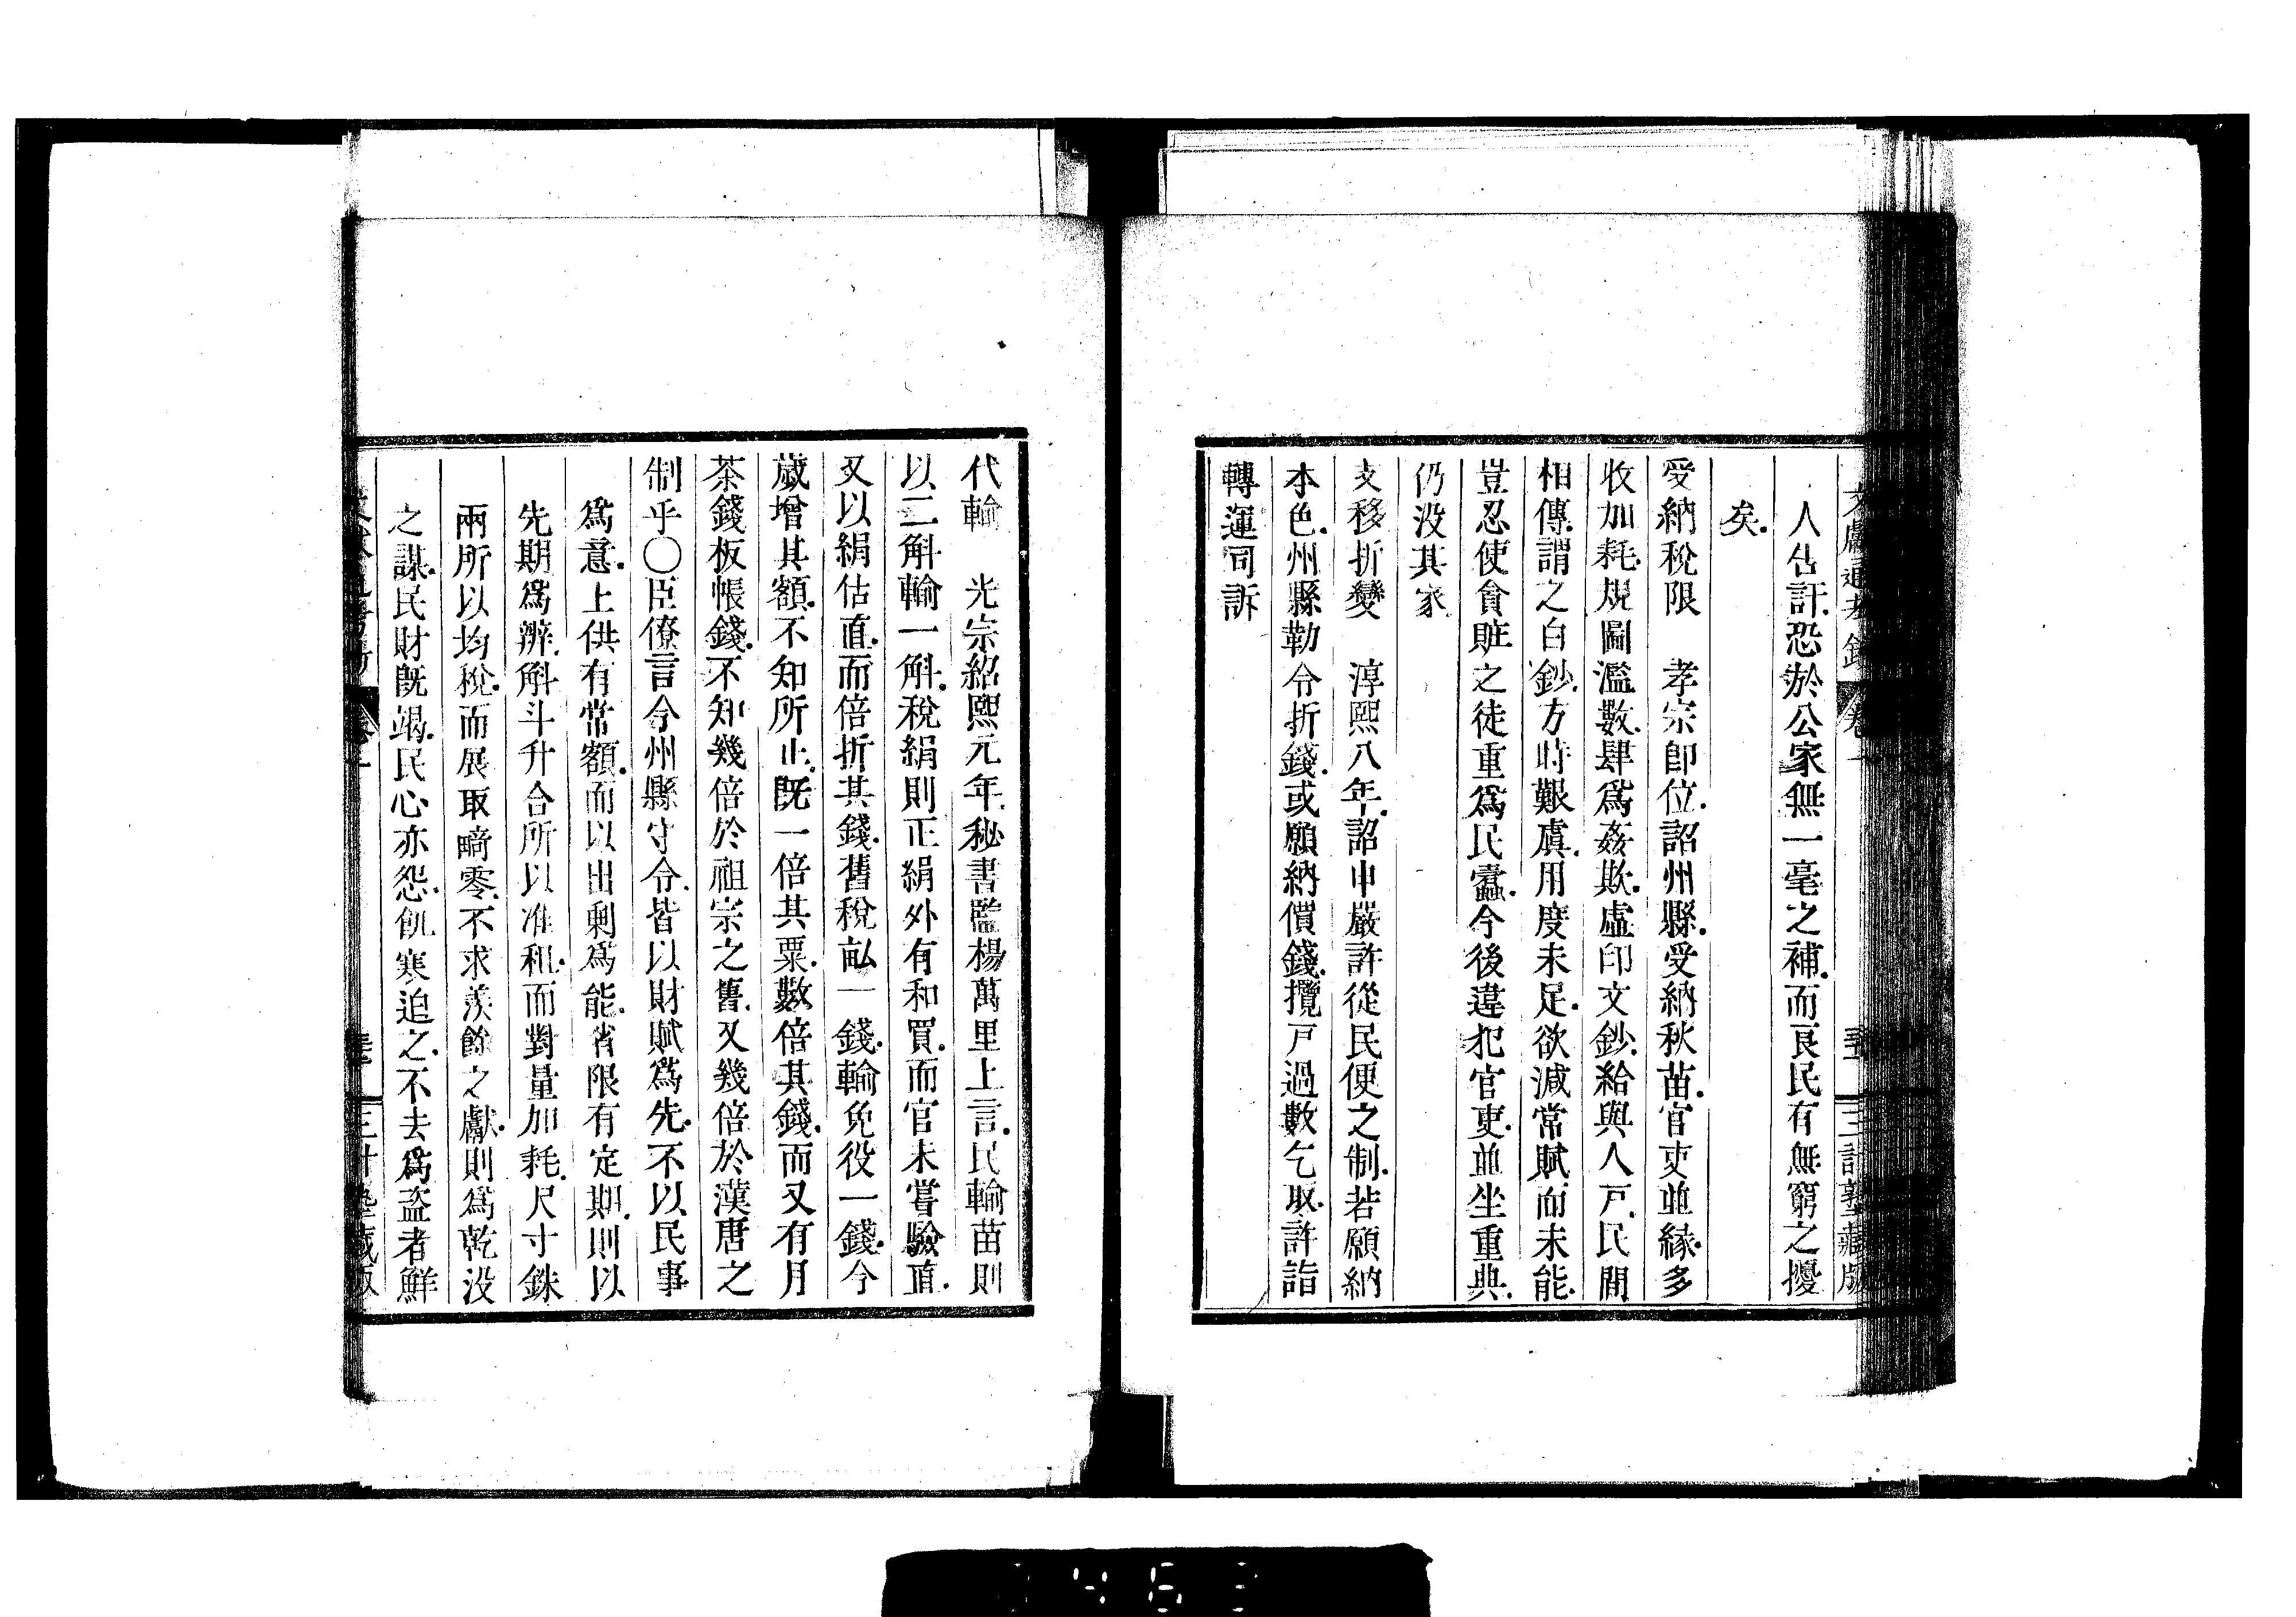 人告訐恐於公家無一毫之補而良民有無窮之擾
矣
受納稅限　孝宗卽位詔州縣受納秋苗官吏並緣多
收加耗規圖濫數肆爲姦欺虛印文鈔給與人戸民間
相傳謂之白鈔方時艱虞用度未足欲減常賦而未能
豈忍使貪贓之徒重爲民蠹今後違犯官吏並坐重典
仍没其家
支移折變　淳熙八年詔申嚴許從民便之制若願納
本色州縣勒令折錢或願納價錢攬戸過數乞取許詣
轉運司訴
代輸　光宗紹熙元年秘書監楊萬里上言民輸苗則
以二斛輸一斛稅絹則正絹外有和買而官未嘗驗直
又以絹估直而倍折其錢舊稅畝一錢輸免役一錢今
歲增其額不知所止旣一倍其粟數倍其錢而又有月
茶錢板帳錢不知幾倍於祖宗之舊又幾倍於漢唐之
制乎〇臣僚言令州縣守令皆以財賦爲先不以民事
爲意上供有常額而以出剰爲能省限有定期則以
先期爲辦斛斗升合所以准租而對量加耗尺寸銖
兩所以均稅而展取畸零不求羨餘之獻則爲乾没
之謀民財旣竭民心亦怨飢寒迫之不去爲盗者鮮